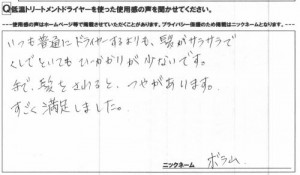 Q低温トリートメントドライヤーを使った使用感の声を聞かせてください。
---使用感の声はホームページ等で掲載させていただくことがあります。プライバシー保護のため掲載はニックネームとなります。---
いつも普通にドライヤーするよりも、髪がサラサラで
くしでといてもひっかかりが少ないです。
手で、髪をさわると、つやがあります。
すごく満足しました。
ニックネーム ボラム